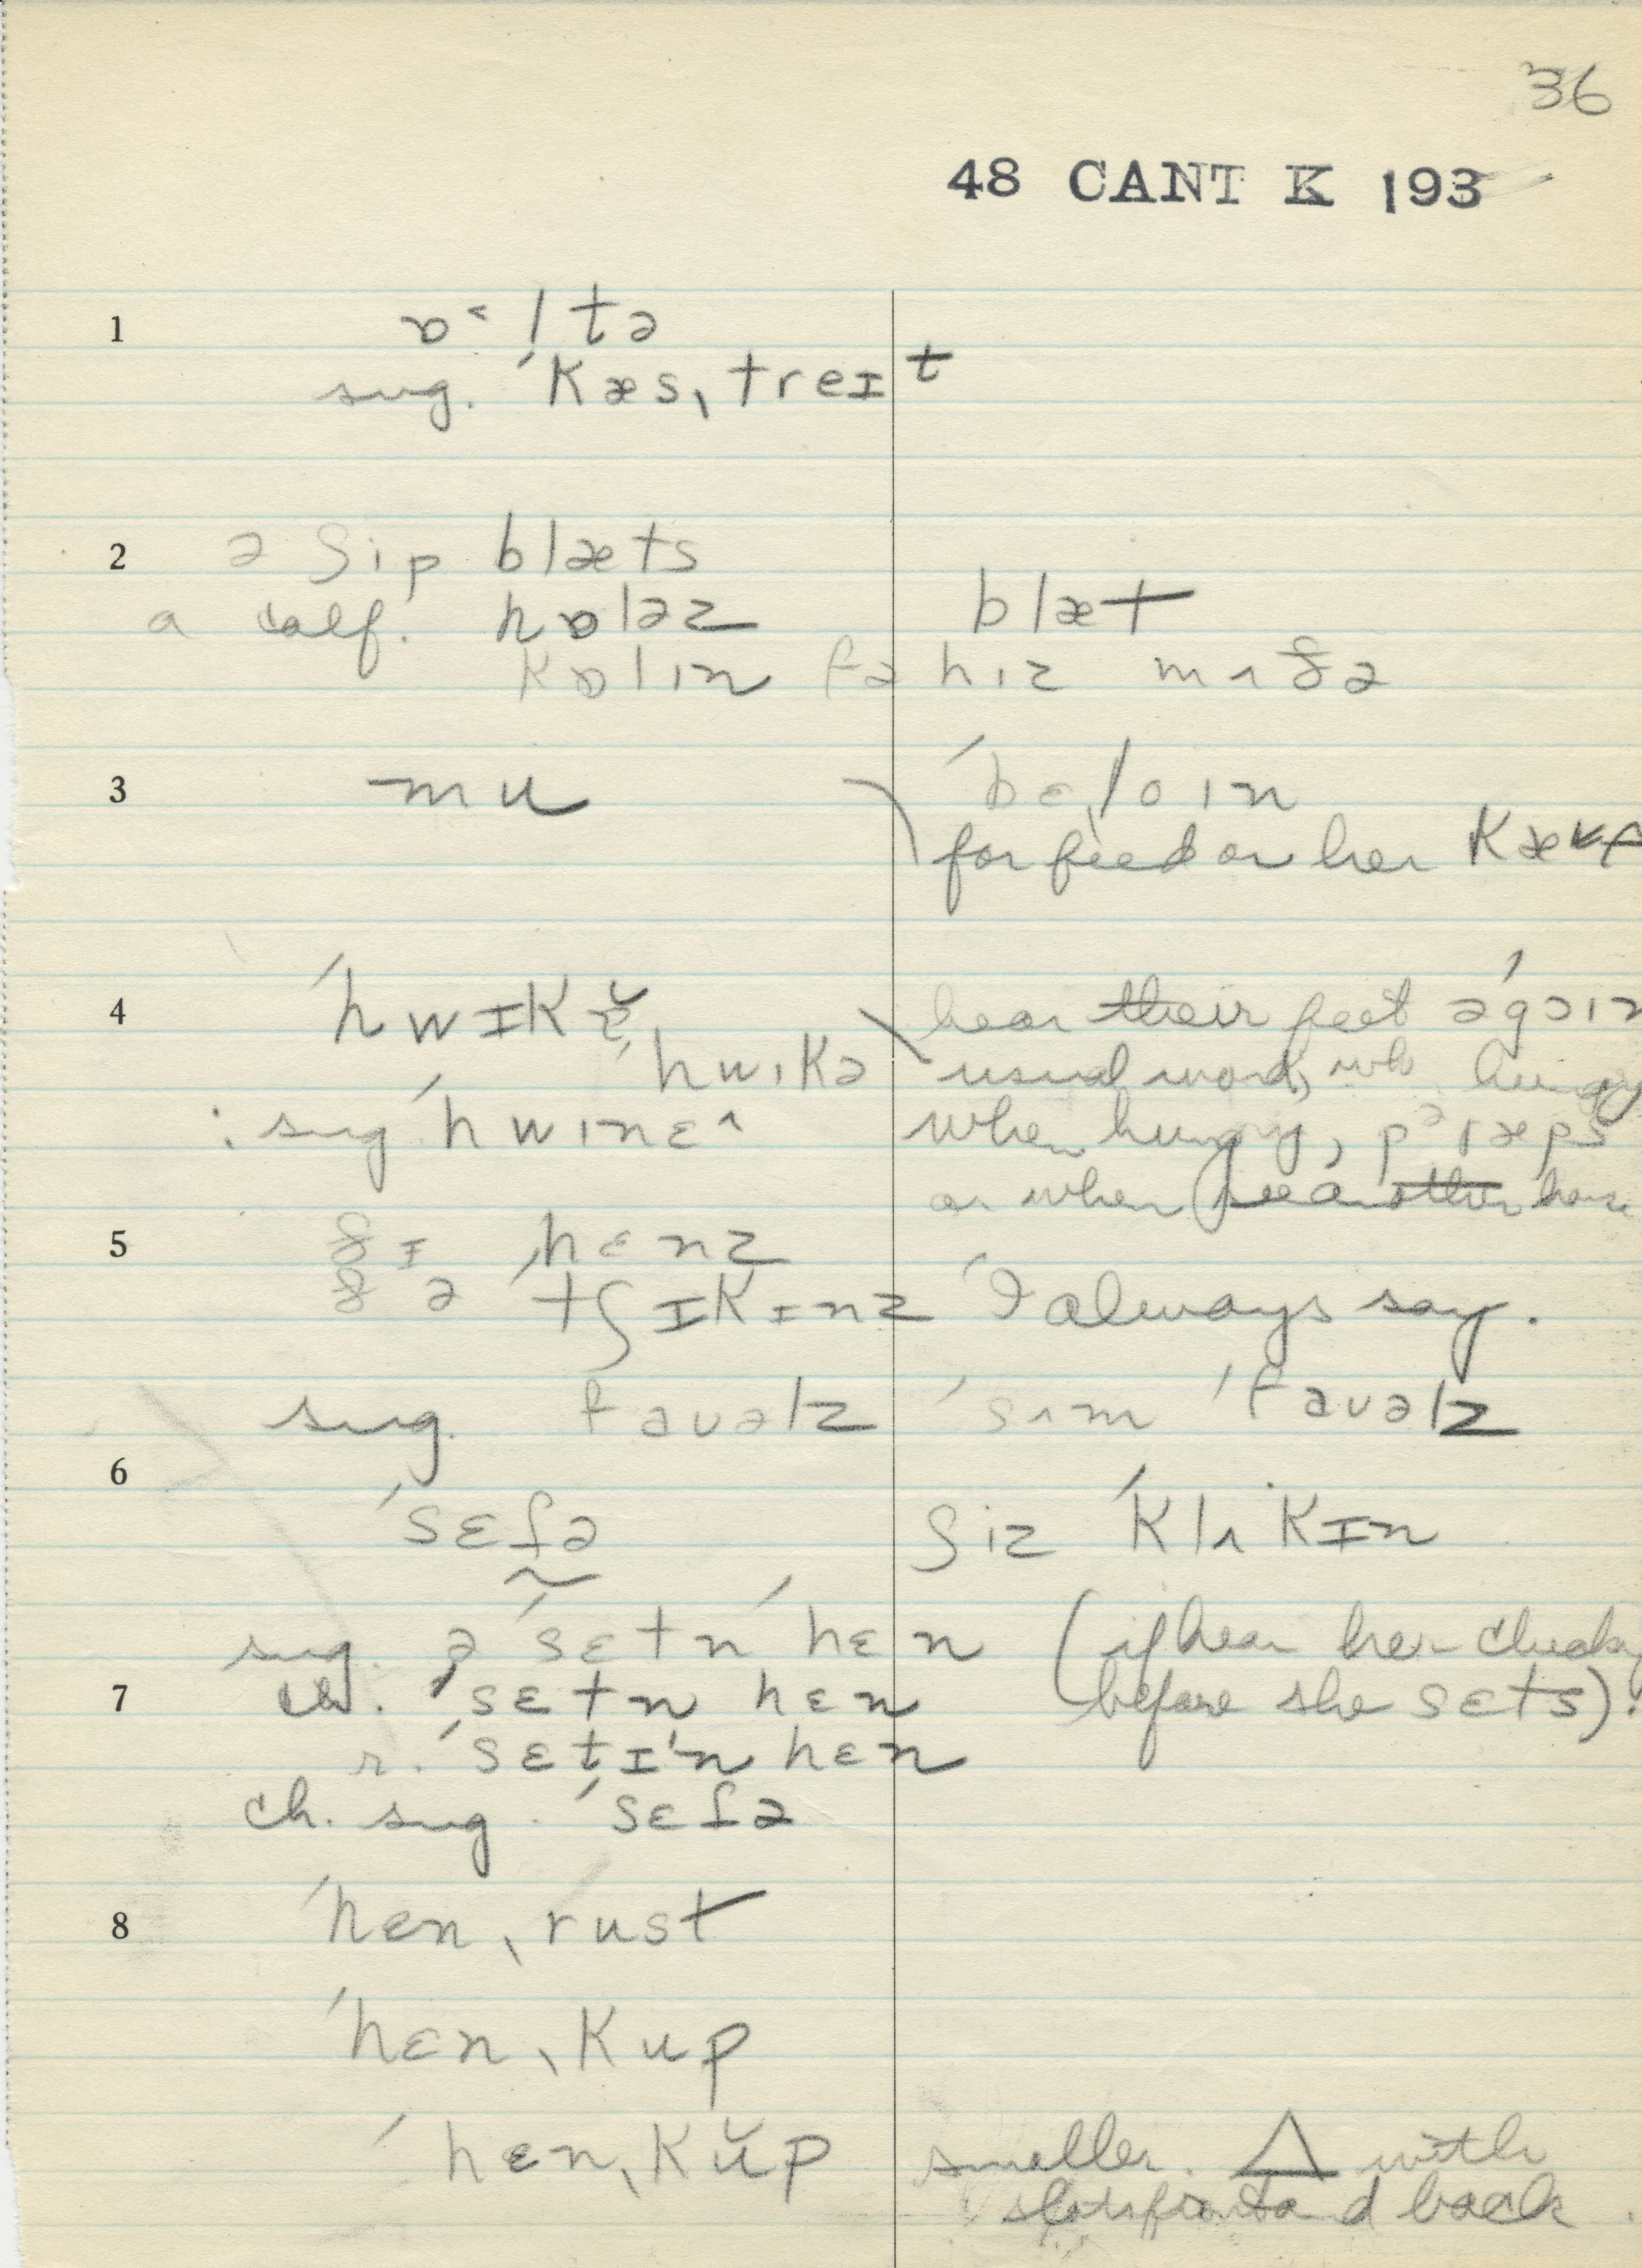 36
48 CANT K 193
1 ɒˑltə
sug. ˈkæsˌtreɪt
2 ə ʃip blæts
blæt
a calf. hɒləz
kɒlɪn fə hɪz mʌðə
3 mu
ˈbɛloɪn
for feed or her
4 ˈhwɪkɛ̆
hear their feet
ˈhwɪkə usual word, hungry
: sug ˈhwɪnɛ^ when hungry,
or when see another horse
5 ðɪ ˈhɛnz
ðə ˈtʃɪkɪnz I always say.
sug. favəlz ˈsʌm ˈfavəlz
6
ˈsɛtə ʃiz ˈklʌkɪn
sug. ə ˈsɛtn ˈhɛn (if hear her
7 cw. ˈsɛtn hɛn before she sɛts).
r. ˈsɛtɪn hɛn
ch. sug. ˈsɛtə
8 ˈhɛnˌrust
ˈhɛnˌkup
ˈhɛnˌkŭp smaller. △ with
slats front and back.